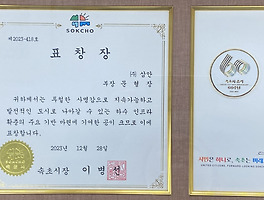 SOKCHO
제2023-418호
표 창 장
㈜ 삼안
부장 문 형 장
귀하께서는 투철한 사명감으로 지속가능하고
발전적인 도시로 나아갈 수 있는 하수 인프라
확충의 주요 기반 마련에 기여한 공이 크므로 이에
표창합니다.
2023년 12월 28일
속초시장 이 병 선
시민은 하나로, 속초는 미래로